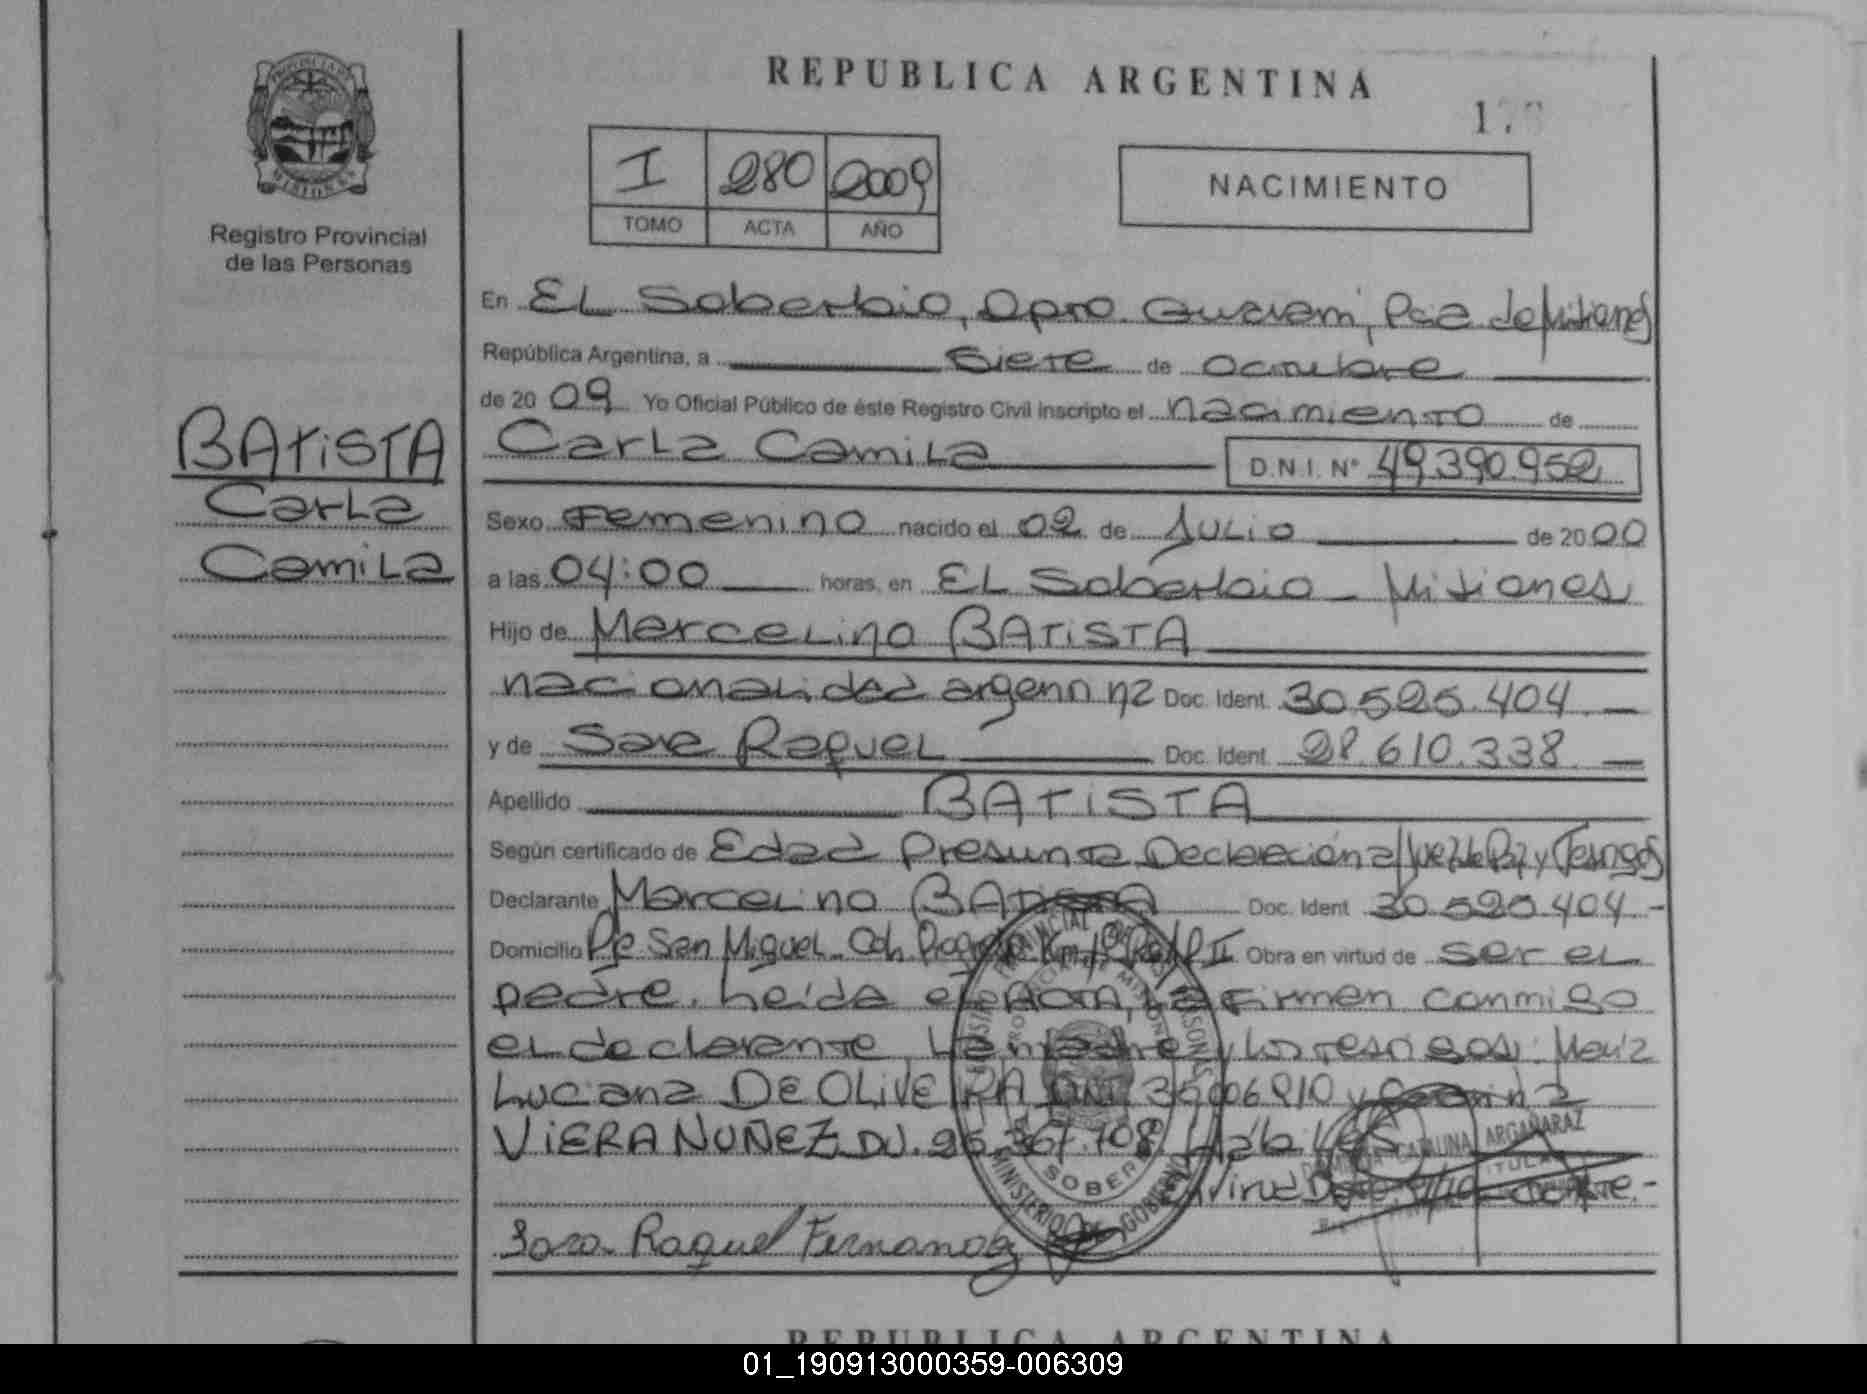 PROVINCIA DE
MISIONES
Registro Provincial
de las Personas
BATISTA
Carla
Camila
REPUBLICA ARGENTINA
I 280 2009
TOMO ACTA AÑO
NACIMIENTO
En EL Soberbio, Dpto. Guarani, Pcia de Misiones
República Argentina, a siete de octubre
de 20 09 Yo Oficial Público de éste Registro Civil inscripto el nacimiento de
Carla Camila D.N.I. Nº 49.390.952
Sexo Femenino nacido el 02 de Julio de 20 00
a las 04:00 horas, en EL Soberbio - Misiones
Hijo de Marcelino BATISTA
nacionalidad argentina Doc. Ident. 30.525.404.-
y de Sara Raquel Doc. Ident. 28.610.338.-
Apellido BATISTA
Según certificado de Edad Presunta Declaración a/Juez de Paz y Testigos
Declarante Marcelino BATISTA Doc. Ident. 30.525.404.-
Domicilio Pje San Miguel - Col. Progreso Km II Obra en virtud de ser el
padre. Leída el ACTA, La firman conmigo
el declarante, La madre y los testigos: María
Luciana DE OLIVEIRA DNI y
VIERA NUÑEZ DU. Hábiles
CATALINA ARGAÑARAZ
TITULAR
MINISTERIO DE GOBIERNO
Sara Raquel Fernandez
REPUBLICA ARGENTINA
01_190913000359-006309